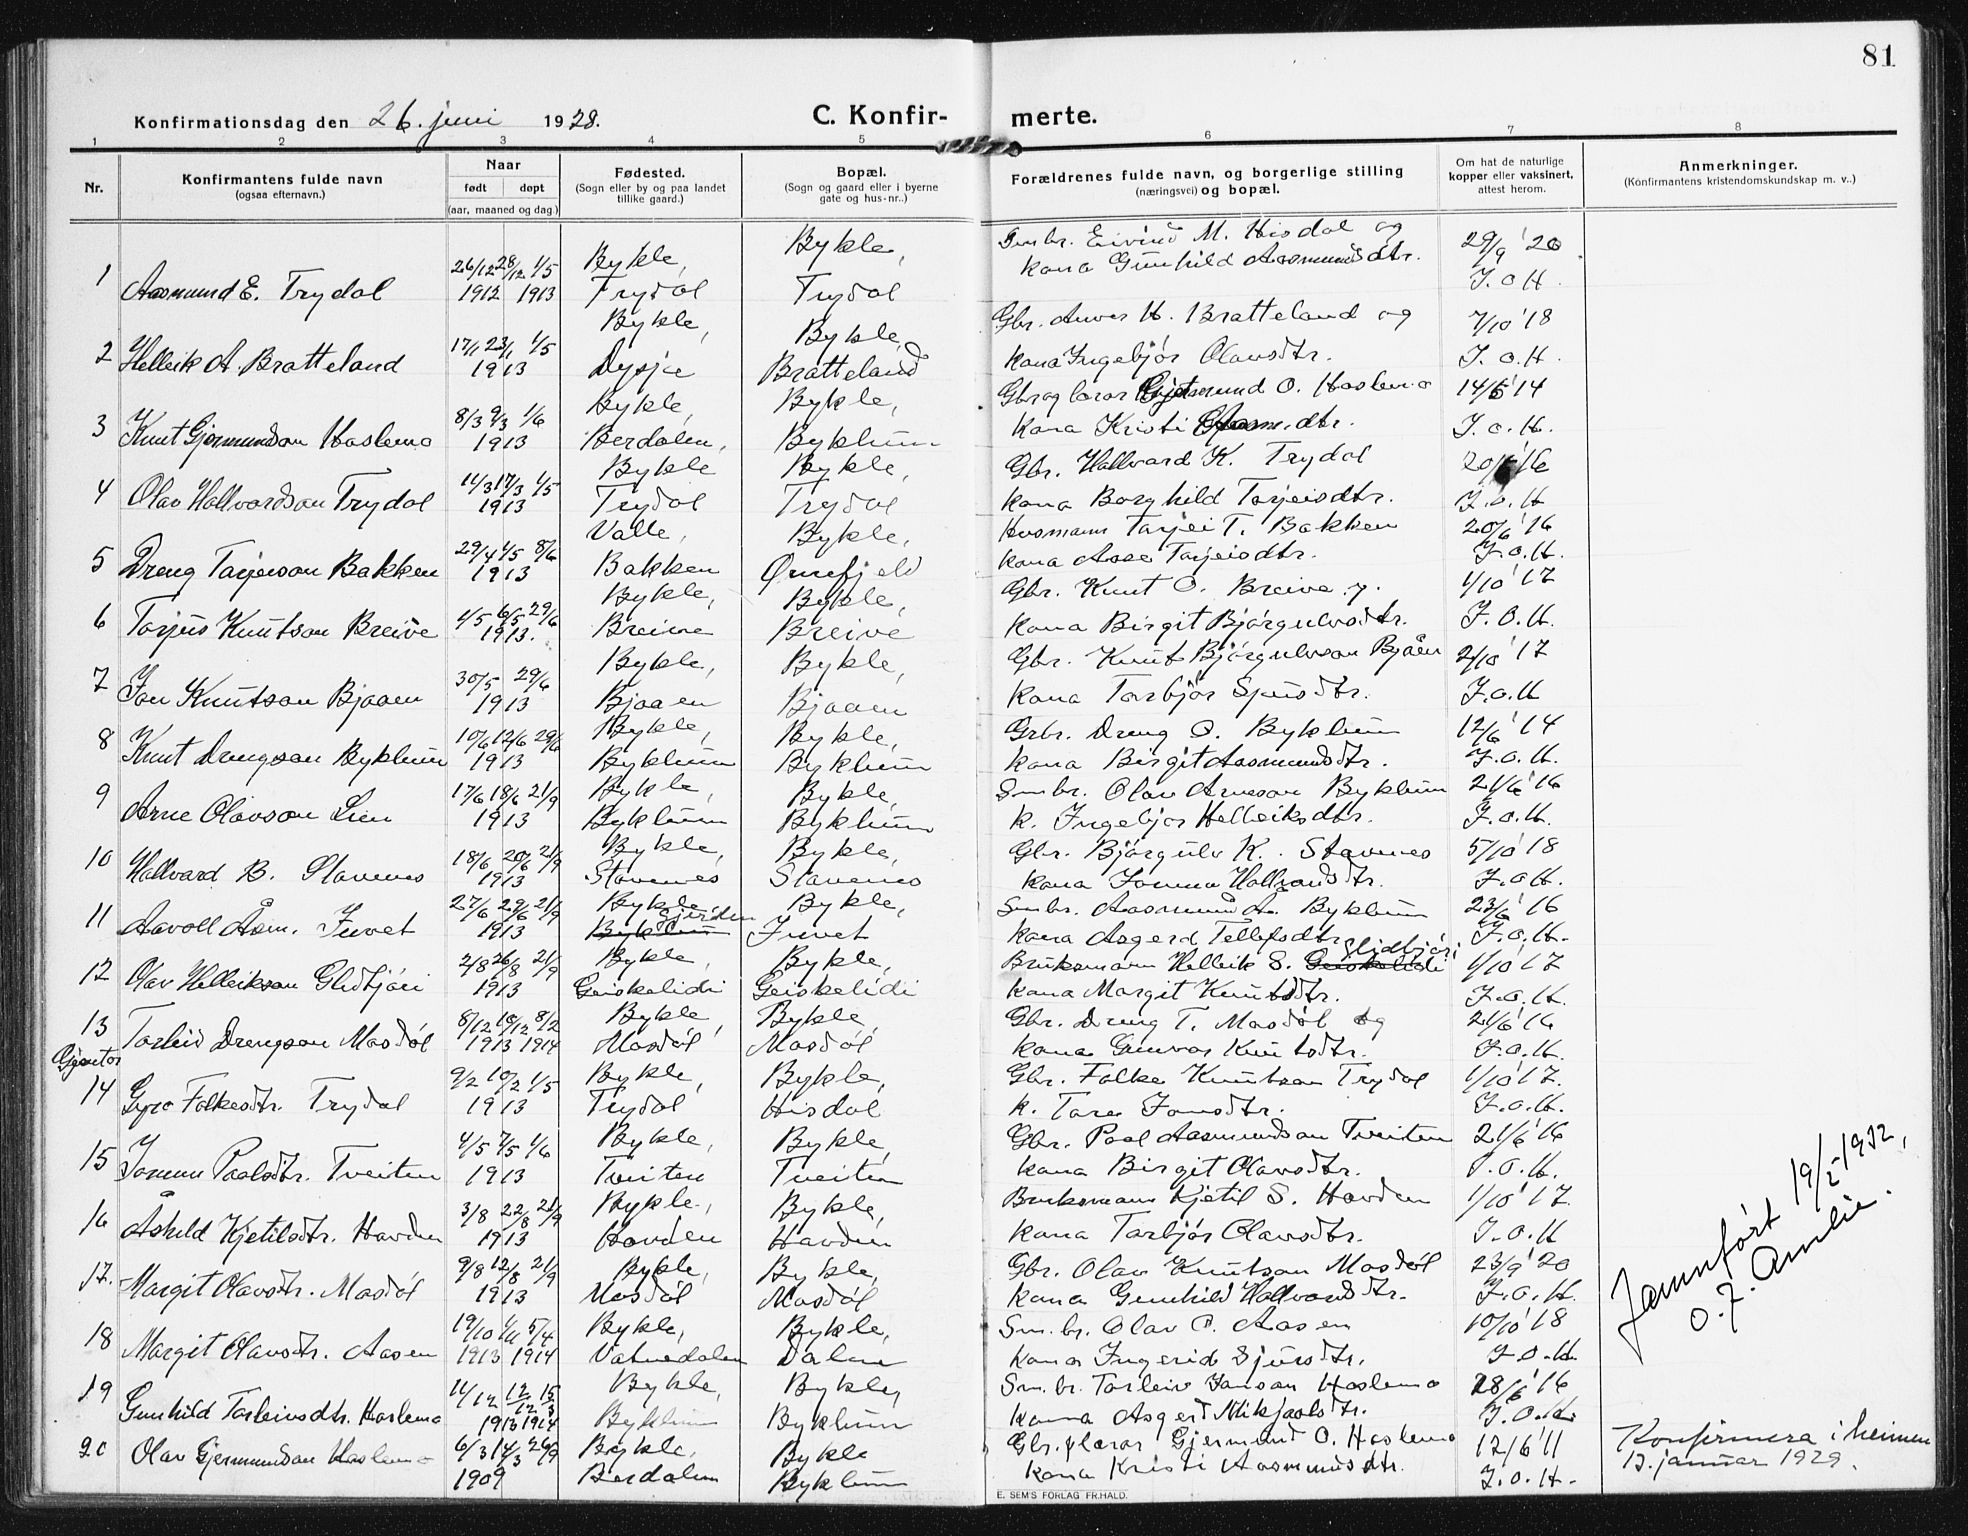 81
Konfirmationsdag den 26. juni 1928.
C. Konfirmerte.
1 2 3 4 5 6 7 8
Nr.
Konfirmantens fulde navn
(ogsaa efternavn.)
Naar
født døpt
(aar, maaned og dag.)
Fødested.
(Sogn eller by og paa landet
tillike gaard.)
Bopæl.
(Sogn og gaard eller i byerne
gate og hus-nr..)
Forældrenes fulde navn, og borgerlige stilling
(næringsvei) og bopæl.
Om hat de naturlige
kopper eller vaksinert,
attest herom.
Anmerkninger.
(Konfirmantens kristendomskundskap m. v..)
1 Aasmund E. Trydal 26/12 28/12 1/5 1912 1913 Bykle, Trydal Bykle, Trydal Smbr. Eivind M. Hisdal og kona Gunhild Aasmundsdtr. 29/9 '20 J.O.H.
2 Helleik A. Bratteland 17/1 23/1 1/5 1913 Bykle, Bykle, Bratteland Gbr. H. Bratteland og kona Ingebjör Olavsdtr. 7/10 '18 J.O.H.
3 Knut Gjermundson Haslemo 8/3 9/3 1/6 1913 Bykle, Berdalen, Bykle, Byklum Gbr og lærar Gjermund O. Haslemo kona Kristi Aasm.dtr. 14/6 '14 J.O.H.
4 Olav Hallvardson Trydal 14/3 17/3 1/5 1913 Bykle Trydal Bykle, Trydal Gbr. Hallvard K. Trydal kona Borghild Tarjeisdtr. 20/6 '16 J.O.H.
5 Dreng Tarjeison Bakken 29/4 4/5 8/6 1913 Valle, Bakken Bykle, Ørnefjeld Husmann Tarjei T. Bakken kona Aase Tarjeisdtr. 20/6 '16 J.O.H.
6 Tarjus Knutson Breive 4/5 6/5 29/6 1913. Bykle, Breive Bykle, Breive Gbr. Knut O. Breive kona Birgit Bjørgulvsdtr. 1/10 '17 J.O.H.
7 Jon Knutson Bjaaen 30/5 29/6 1913 Bykle, Bjaaen Bykle, Bjaaen Gbr. Knut Bjørgulvson Bjåen kona Torbjør Sjursdtr. 2/10 '17 J.O.H.
8 Knut Drengson Byklum 10/6 12/6 29/6 1913 Bykle, Byklum Bykle, Byklum Gbr. Dreng O. Byklum kona Birgit Aasmundsdtr. 12/6 '14 J.O.H.
9 Arne Olavson Lien 17/6 18/6 21/9 1913 Bykle, Byklum Bykle, Byklum Smbr. Olav Arneson Byklum k. Ingebjør Helleiksdtr. 21/6 '16 J.O.H.
10 Hallvard B. Stavenes 18/6 20/6 21/9 1913 Bykle, Stavenes Bykle, Stavenes Gbr. Bjørgulv K. Stavenes kona Jorunn Hallvardsdtr. 5/10 '18 J.O.H.
11 Aavoll Åsm. Juvet 27/6 29/6 21/9 1913 Bykle, Byklum Bykle, Juvet Smbr. Aasmund A. Byklum kona Asgerd Tellefsdtr. 23/6 '16 J.O.H.
12 Olav Helleikson Glidbjöri 2/8 26/8 21/9 1913 Bykle, Geiskelidi Bykle, Geiskelidi Bruksmann Helleik S. Geiskelidi Glidbjöri kona Margit Knutsdtr. 1/10 '17 J.O.H.
13 Tarleiv Drengson Mosdøl 8/12 10/12 8/2 1913 1914 Bykle, Mosdøl Bykle, Mosdøl Gbr. Dreng T. Mosdøl og kona Gunvor Knutsdtr. 21/6 '16 J.O.H.
Gjentor
14 Gyro Folkesdtr. Trydal 9/2 10/2 1/5 1913 Bykle, Trydal Bykle, Hisdal Gbr. Folke Knutson Trydal k. Tore Jonsdtr. 1/10 '17. J.O.H.
15 Jorunn Paalsdtr. Tveiten 4/5 7/5 1/6 1913 Bykle, Tveiten Bykle, Tveiten Gbr. Paal Aasmundson Tveiten kona Birgit Olavsdtr. 21/6 '16 J.O.H.
16 Åshild Kjetilsdtr. Hovden 3/8 22/8 21/9 1913 Bykle, Hovden Bykle, Hovden Bruksmann Kjetil S. Hovden kona Torbjør Olavsdtr. 1/10 '17. J.O.H
17. Margit Olavsdtr. Mosdøl 9/8 12/8 21/9 1913 Bykle, Mosdøl Bykle, Mosdøl Gbr. Olav Knutson Mosdøl kona Gunhild Hallvardsdtr. 23/9 '20 J.O.H.
18 Margit Olavsdtr. Aasen 19/10 1/11 5/4 1913 1914 Bykle, Vatnedalen Bykle, Dalen Sm.br. Olav O. Aasen kona Ingerid Sjursdtr. 10/10 '18 J.O.H.
19 Gunhild Tarleivsdtr. Haslemo 11/12 12/12 15/3 1913 1914 Bykle, Byklum Bykle, Byklum Sm.br. Tarleiv Janson Haslemo kona Asgerd Mikjaalsdtr. 28/6 '16 J.O.H.
20 Olav Gjermundson Haslemo 6/3 14/3 26/9 1909 Bykle, Berdalen Bykle Byklum Gbr. lærar Gjermund O. Haslemo kona Kristi Aasmundsdtr. 12/6 '11 J.O.H.
Konfirmera i heimen
13. januar 1929.
Jamnført 19/2-1932,
O. J. Amlie.
E. SEM'S FORLAG FR.HALD.